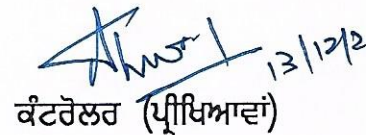 13/12/2
ਕੰਟਰੋਲਰ (ਪ੍ਰੀਖਿਆਵਾਂ)